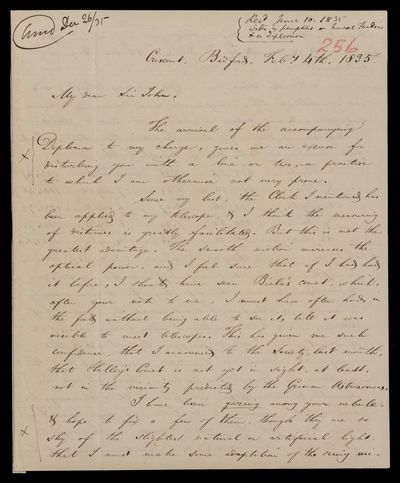 Answd Dec 26/35
Recd June 10. 1835
with a pamphlet on Lunar Tables
& a Diploma
256
Crescent, Bedford, Feby 4th, 1835.
My dear Sir John,
The arrival of the accompanying
Diploma to my charge, gives me an excuse for
disturbing you with a line or two,—a practice
to which I am otherwise not very prone.
Since my last, the Clock I mentioned has
been applied to my telescope, & I think the measuring
of distances is greatly facilitated. But this is not the
greatest advantage. The smooth motion increases the
optical power, and I feel sure that if I had had
it before, I should have seen Biela's comet, which,
after your note to me, I must have often had in
the field without being able to see it, till it was
visible to most telescopes. This has given me such
confidence, that I announced to the Society, last month,
that Halley's Comet is not yet in sight, at least,
not in the vicinity predicted by the German Astronomers.
I have been going among your nebulæ
& hope to fix a few of them, though they are so
shy of the slightest natural or artificial light
that I must make some adaptation of the ring mi-
x
x